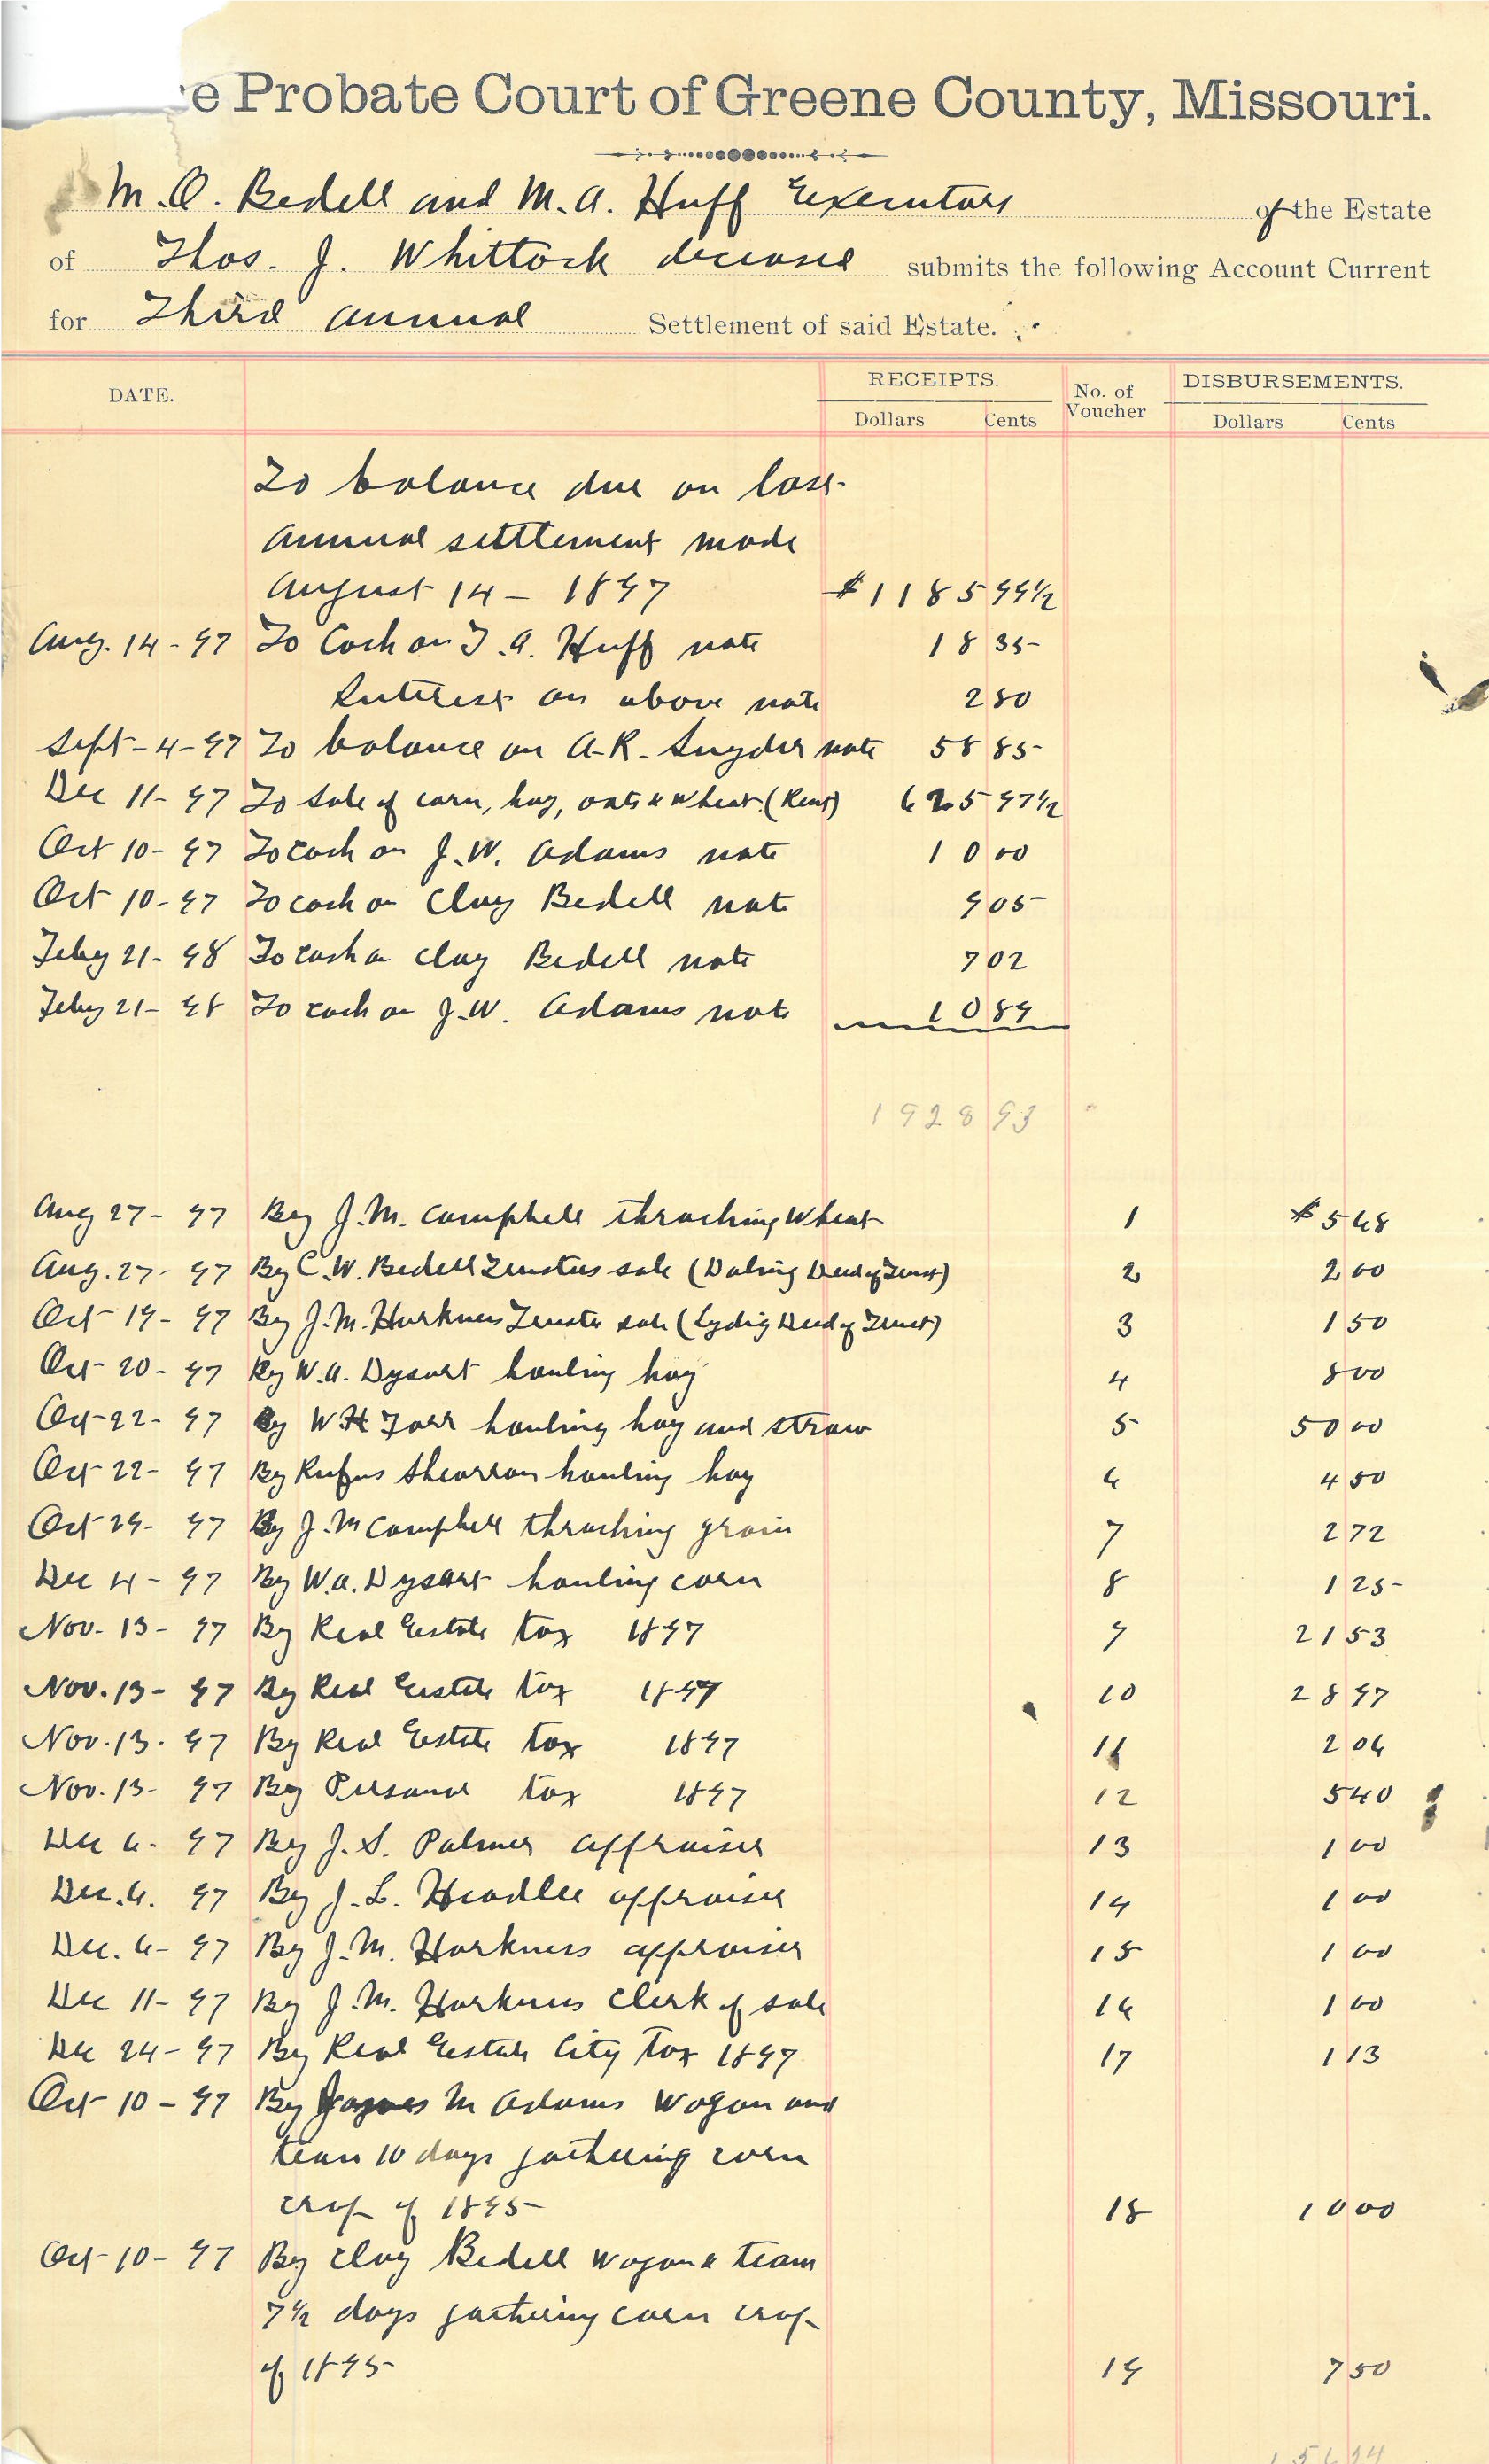 e Probate Court of Greene County, Missouri.
M. O. Bedell and M. A. Huff Executors of the Estate
of Thos. J. Whittock deceased submits the following Account Current
for Third annual Settlement of said Estate.
DATE. RECEIPTS. No. of Voucher DISBURSEMENTS.
Dollars Cents Dollars Cents
To balance due on last
annual settlement made
August 14 - 1897 $1185 99½
Aug. 14 - 97 To Cash on T. A. Huff note 18 35
Interest on above note 2 80
Sept - 4 - 97 To balance on A. R. Snyder note 58 85
Dec 11 - 97 To sale of corn, hay, oats & wheat (Rent) 625 97½
Oct 10 - 97 To cash on J. W. Adams note 10 00
Oct 10 - 97 To cash on Clay Bedell note 9 05
Feby 21 - 98 To cash on Clay Bedell note 7 02
Feby 21 - 98 To cash on J. W. Adams note 10 89
1928 93
Aug 27 - 97 By J. M. Campbell thrashing Wheat 1 $5 68
Aug. 27 - 97 By C. W. Bedell Trustees sale (Daling Deed of Trust) 2 2 00
Oct 19 - 97 By J. M. Harkness Trustee sale (Lydig Deed of Trust) 3 1 50
Oct 20 - 97 By W. A. Dysart hauling hay 4 8 00
Oct 22 - 97 By W H Farr hauling hay and straw 5 50 00
Oct 22 - 97 By Rufus Shearron hauling hay 6 4 50
Oct 29 - 97 By J. M Campbell thrashing grain 7 2 72
Dec 4 - 97 By W. A. Dysart hauling corn 8 1 25
Nov. 13 - 97 By Real Estate tax 1897 9 21 53
Nov. 13 - 97 By Real Estate tax 1897 10 28 97
Nov. 13 - 97 By Real Estate tax 1897 11 2 06
Nov. 13 - 97 By Personal tax 1897 12 5 40
Dec 6 - 97 By J. S. Palmer appraiser 13 1 00
Dec. 6. 97 By J. L. Headlee appraiser 14 1 00
Dec. 6 - 97 By J. M. Harkness appraiser 15 1 00
Dec 11 - 97 By J. M. Harkness Clerk of sale 16 1 00
Dec 24 - 97 By Real Estate City Tax 1897 17 1 13
Oct 10 - 97 By James M Adams Wagon and
team 10 days gathering corn
crop of 1895 18 10 00
Oct 10 - 97 By Clay Bedell Wagon & team
7½ days gathering corn crop
of 1895 19 7 50
156 24